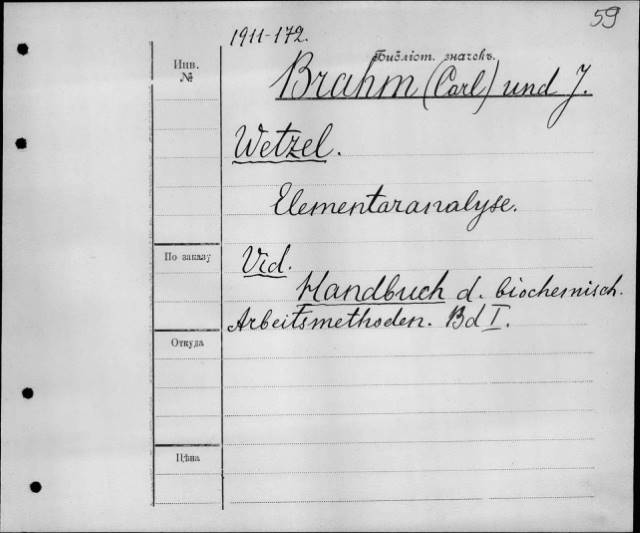 59
1911-172.
Библіот. значовъ.
Инв.
№
Brahm (Carl) und J.
Wetzel.
Elementaranalyse.
По заказу
Vid.
Handbuch d. biochemisch.
Arbeitsmethoden. Bd I.
Откуда
Цѣна